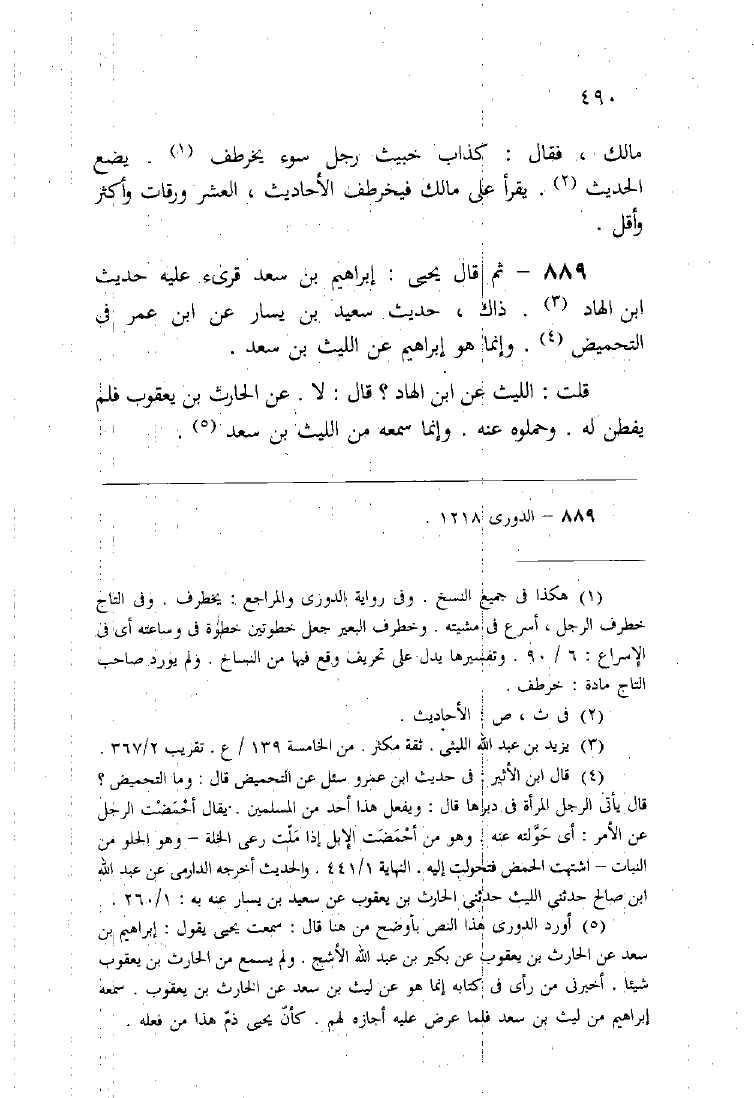 ٤٩٠
مالك ، فقال : كذاب خبيث رجل سوء يخرطف (١) . يضع
الحديث (٢) . يقرأ على مالك فيخرطف الأحاديث ، العشر ورقات وأكثر
وأقل .
٨٨٩ – ثم قال يحيى : إبراهيم بن سعد قرىء عليه حديث
ابن الهاد (٣) . ذاك ، حديث سعيد بن يسار عن ابن عمر فى
التحميض (٤) . وإنما هو إبراهيم عن الليث بن سعد .
قلت : الليث عن ابن الهاد ؟ قال : لا . عن الحارث بن يعقوب فلم
يفطن له . وحملوه عنه . وإنما سمعه من الليث بن سعد (٥) .
٨٨٩ – الدورى ١٢١٨ .
(١) هكذا فى جميع النسخ . وفى رواية الدورى والمراجع : يخطرف . وفى التاج
خطرف الرجل ، أسرع فى مشيته . وخطرف البعير جعل خطوتين خطوة فى وساعته أى فى
الإسراع : ٦ / ٩٠ . وتفسيرها يدل على تحريف وقع فيها من النساخ . ولم يورد صاحب
التاج مادة : خرطف .
(٢) فى ث ، ص : الأحاديث .
(٣) يزيد بن عبد الله الليثى . ثقة مكثر . من الخامسة ١٣٩ / ع . تقريب ٣٦٧/٢ .
(٤) قال ابن الأثير : فى حديث ابن عمرو سئل عن التحميض قال : وما التحميض ؟
قال يأتى الرجل المرأة فى دبرها قال : ويفعل هذا أحد من المسلمين . يقال أحْمَضْت الرجل
عن الأمر : أى حَوَّلته عنه وهو من أحْمَضَت الإبل إذا مَلّت رعى الخلة – وهو الحلو من
النبات – اشتهت الحمض فتحولت إليه . النهاية ٤٤١/١ . والحديث أخرجه الدارمى عن عبد الله
ابن صالح حدثنى الليث حدثنى الحارث بن يعقوب عن سعيد بن يسار عنه به : ٢٦٠/١ .
(٥) أورد الدورى هذا النص بأوضح من هنا قال : سمعت يحيى يقول : إبراهيم بن
سعد عن الحارث بن يعقوب عن بكير بن عبد الله الأشج . ولم يسمع من الحارث بن يعقوب
شيئا . أخبرنى من رأى فى كتابه إنما هو عن ليث بن سعد عن الحارث بن يعقوب . سمعه
إبراهيم من ليث بن سعد فلما عرض عليه أجازه لهم . كأنّ يحيى ذمّ هذا من فعله .